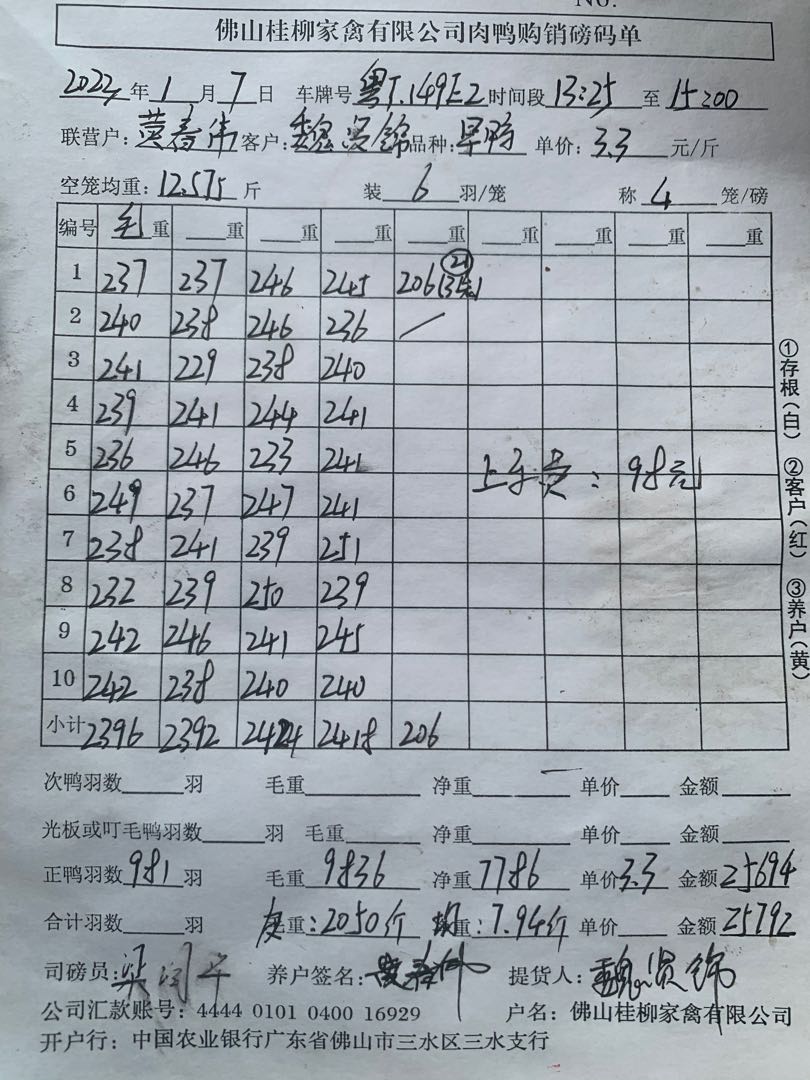 No.
佛山桂柳家禽有限公司肉鸭购销磅码单
2022年1月7日 车牌号粤T.149E2时间段13:25至15:00
联营户:黄春伟客户:魏贤锦品种:旱鸭 单价:3.3元/斤
空笼均重:12.575斤 装6羽/笼 称4笼/磅
编号 毛重 重 重 重 重 重 重 重 重
1 237 237 246 245 206(3笼) 21
2 240 238 246 236 /
3 241 229 238 240
4 239 241 244 241
5 236 246 233 241 上车费:98元
6 249 237 247 241
7 238 241 239 251
8 232 239 250 239
9 242 246 241 245
10 242 238 240 240
小计 2396 2392 2424 2418 206
次鸭羽数 羽 毛重 净重 单价 金额
光板或叮毛鸭羽数 羽 毛重 净重 单价 金额
正鸭羽数981羽 毛重9836 净重7786 单价3.3 金额25694
合计羽数 羽 皮重:2050斤 均重:7.94斤 单价 金额25792
司磅员: 养户签名:黄春伟 提货人:魏贤锦
公司汇款账号:4444 0101 0400 16929 户名:佛山桂柳家禽有限公司
开户行:中国农业银行广东省佛山市三水区三水支行
①存根(白) ②客户(红) ③养户(黄)